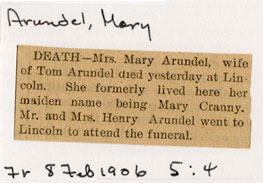 Arundel, Mary
DEATH—Mrs. Mary Arundel, wife
of Tom Arundel died yesterday at Lin-
coln. She formerly lived here her
maiden name being Mary Cranny.
Mr. and Mrs. Henry Arundel went to
Lincoln to attend the funeral.
Fr 8 Feb 1906 5:4